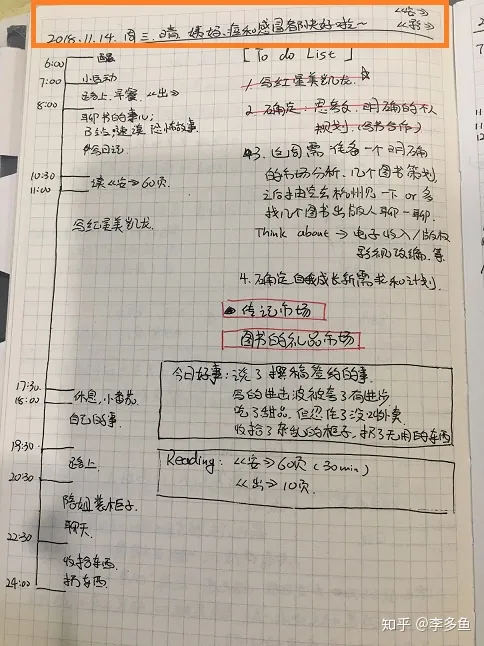 2018.11.14. 周三 晴 姨妈、痘和感冒都快好啦~
《容》
《彩》
[To do List]
6:00
7:00 小运动
路上.早餐.《出》
8:00
聊书的事儿;
#写日记
10:30
11:00
读《容》60页.
写红星美凯龙
17:30
18:00
休息,小番茄
自己的事.
19:30
路上
20:30
陪姐装柜子.
聊天.
22:30
收拾东西.
扔东西.
24:00
1. 写红星美凯龙.
2. 确定:
规划.(写书合作)
3. 这周需准备一个明确
的市场分析、几个图书策划,
之后
找几个图书出版人聊一聊.
Think about → 电子收入/版权
影视改编.等.
4. 确定自我成长新需求和计划.
传记市场
图书的礼品市场
今日好事:说了撰稿签约的事.
写的曲出波被夸了有进步
吃了甜品,但忍住了没叫外卖.
收拾了杂乱的柜子,扔了无用的东西
Reading: 《容》60页(30min)
《出》10页.
知乎 @李多鱼